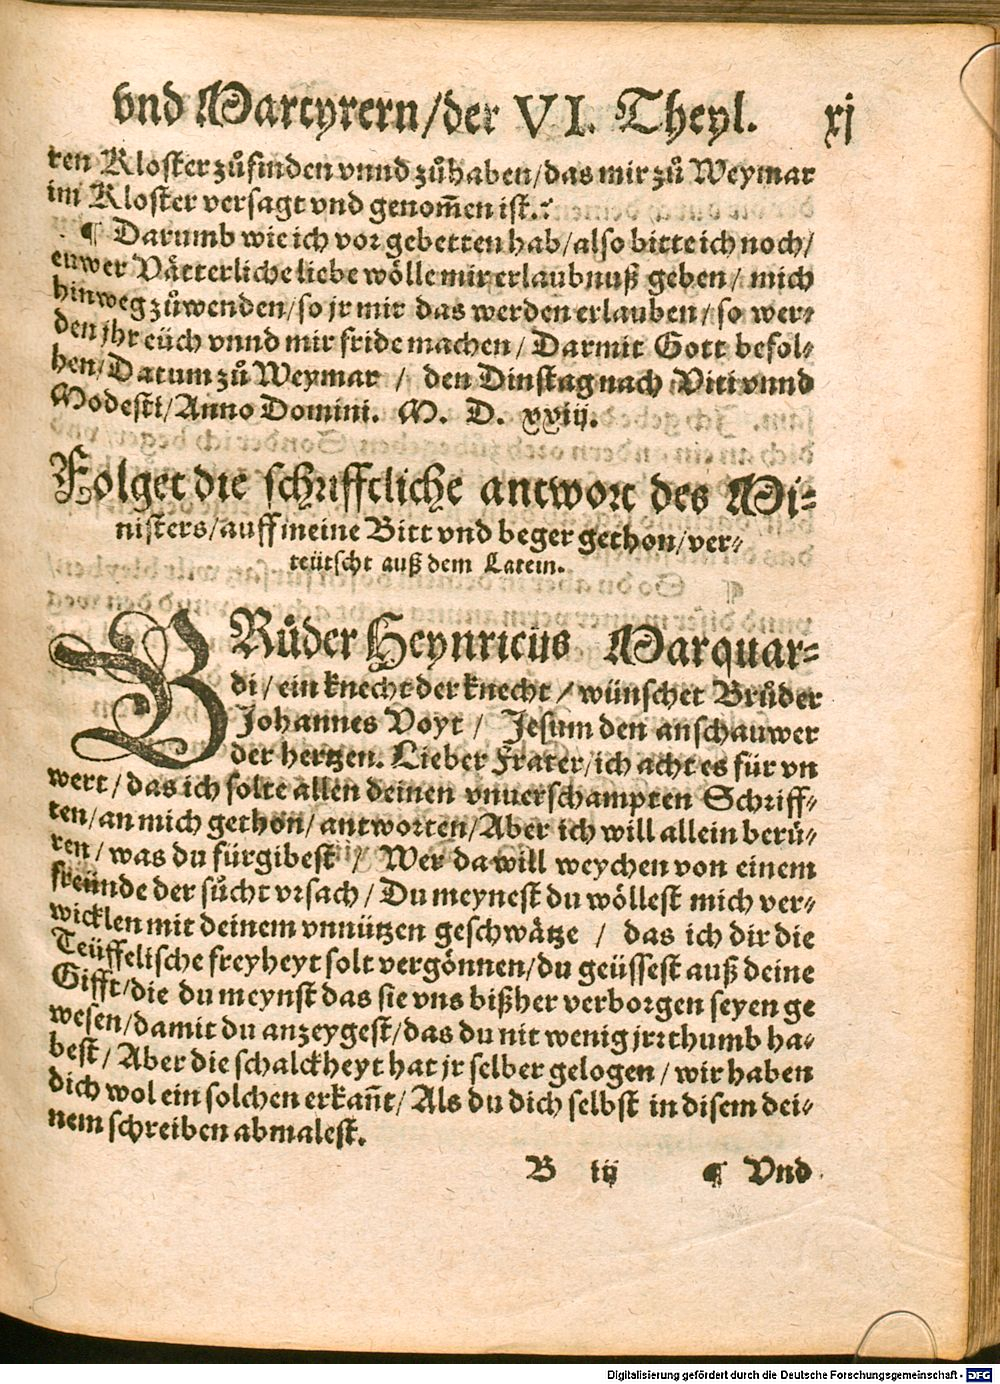 vnd Martyrern/der VI. Theyl. xj
ren Kloster zůfinden vnnd zůhaben/das mir zů Weymar
im Kloster versagt vnd genom̃en ist.
¶ Darumb wie ich vor gebetten hab/also bitte ich noch/
euwer Vätterliche liebe wölle mir erlaubnuß geben/ mich
hinweg zůwenden/so jr mir das werden erlauben/ so wer⸗
den jhr eüch vnnd mir fride machen/ Darmit Gott befol⸗
hen/Datum zů Weymar / den Dinstag nach Viti vnnd
Modesti/Anno Domini. M. D. xxiij.
Folget die schrifftliche antwort des Mi⸗
nisters/auff meine Bitt vnd beger gethon/ver⸗
teütscht auß dem Latein.
BRůder Heynricus Marquar⸗
di/ein knecht der knecht/ wünschet Brůder
Johannes Voyt/ Jesum den anschauwer
der hertzen. Lieber Frater/ich acht es für vn
wert/das ich solte allen deinen vnuerschampten Schriff⸗
ten/an mich gethon/antworten/Aber ich will allein berü⸗
ren/was du fürgibest / Wer da will weychen von einem
freünde der sůcht vrsach/Du meynest du wöllest mich ver⸗
wicklen mit deinem vnnützen geschwätze / das ich dir die
Teüffelische freyheyt solt vergönnen/du geüssest auß deine
Gifft/die du meynst das sie vns bißher verborgen seyen ge
wesen/damit du anzeygest/das du nit wenig jrrthumb ha⸗
best/Aber die schalckheyt hat jr selber gelogen/wir haben
dich wol ein solchen erkañt/Als du dich selbst in disem dei⸗
nem schreiben abmalest.
B iij ¶ Vnd
Digitalisierung gefördert durch die Deutsche Forschungsgemeinschaft - DFG